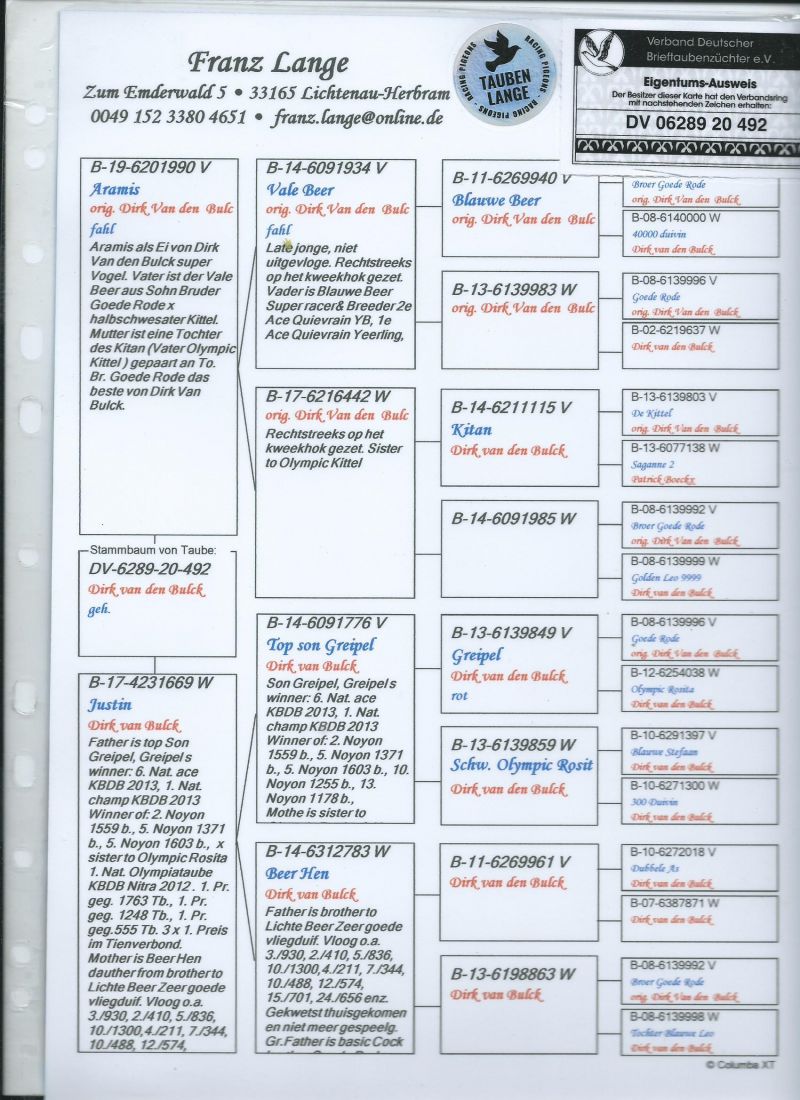 Franz Lange
Zum Emderwald 5 • 33165 Lichtenau-Herbram
0049 152 3380 4651 • franz.lange@online.de
RACING PIGEONS - RACING PIGEONS -
TAUBEN
LANGE
Verband Deutscher
Brieftaubenzüchter e.V.
Eigentums-Ausweis
Der Besitzer dieser Karte hat den Verbandsring
mit nachstehenden Zeichen erhalten:
DV 06289 20 492
B-19-6201990 V
Aramis
orig. Dirk Van den Bulc
fahl
Aramis als Ei von Dirk
Van den Bulck super
Vogel. Vater ist der Vale
Beer aus Sohn Bruder
Goede Rode x
halbschwesater Kittel.
Mutter ist eine Tochter
des Kitan (Vater Olympic
Kittel ) gepaart an To.
Br. Goede Rode das
beste von Dirk Van
Bulck.
Stammbaum von Taube:
DV-6289-20-492
Dirk van den Bulck
geh.
B-17-4231669 W
Justin
Dirk van Bulck
Father is top Son
Greipel, Greipel s
winner: 6. Nat. ace
KBDB 2013, 1. Nat.
champ KBDB 2013
Winner of: 2. Noyon
1559 b., 5. Noyon 1371
b., 5. Noyon 1603 b., x
sister to Olympic Rosita
1. Nat. Olympiataube
KBDB Nitra 2012 . 1. Pr.
geg. 1763 Tb., 1. Pr.
geg. 1248 Tb., 1. Pr.
geg.555 Tb. 3 x 1. Preis
im Tienverbond.
Mother is Beer Hen
dauther from brother to
Lichte Beer Zeer goede
vliegduif. Vloog o.a.
3./930, 2./410, 5./836,
10./1300,4./211, 7./344,
10./488, 12./574,
B-14-6091934 V
Vale Beer
orig. Dirk Van den Bulc
fahl
Late jonge, niet
uitgevloge. Rechtstreeks
op het kweekhok gezet.
Vader is Blauwe Beer
Super racer& Breeder 2e
Ace Quievrain YB, 1e
Ace Quievrain Yeerling,
B-17-6216442 W
orig. Dirk Van den Bulc
Rechtstreeks op het
kweekhok gezet. Sister
to Olympic Kittel
B-14-6091776 V
Top son Greipel
Dirk van Bulck
Son Greipel, Greipel s
winner: 6. Nat. ace
KBDB 2013, 1. Nat.
champ KBDB 2013
Winner of: 2. Noyon
1559 b., 5. Noyon 1371
b., 5. Noyon 1603 b., 10.
Noyon 1255 b., 13.
Noyon 1178 b.,
Mothe is sister to
B-14-6312783 W
Beer Hen
Dirk van Bulck
Father is brother to
Lichte Beer Zeer goede
vliegduif. Vloog o.a.
3./930, 2./410, 5./836,
10./1300,4./211, 7./344,
10./488, 12./574,
15./701, 24./656 enz.
Gekwetst thuisgekomen
en niet meer gespeelg.
Gr.Father is basic Cock
B-11-6269940 V
Blauwe Beer
orig. Dirk Van den Bulc
B-13-6139983 W
orig. Dirk Van den Bulc
B-14-6211115 V
Kitan
Dirk van den Bulck
B-14-6091985 W
B-13-6139849 V
Greipel
Dirk van den Bulck
rot
B-13-6139859 W
Schw. Olympic Rosit
Dirk van den Bulck
B-11-6269961 V
Dirk van den Bulck
B-13-6198863 W
Dirk van Bulck
Broer Goede Rode
orig. Dirk Van den Bulck
B-08-6140000 W
40000 duivin
Dirk van den Bulck
B-08-6139996 V
Goede Rode
orig. Dirk Van den Bulck
B-02-6219637 W
Dirk van den Bulck
B-13-6139803 V
De Kittel
orig. Dirk Van den Bulck
B-13-6077138 W
Saganne 2
Patrick Boeckx
B-08-6139992 V
Broer Goede Rode
orig. Dirk Van den Bulck
B-08-6139999 W
Golden Leo 9999
Dirk van den Bulck
B-08-6139996 V
Goede Rode
orig. Dirk Van den Bulck
B-12-6254038 W
Olympic Rosita
Dirk van den Bulck
B-10-6291397 V
Blauwe Stefaan
Dirk van den Bulck
B-10-6271300 W
300 Duivin
Dirk van den Bulck
B-10-6272018 V
Dubbele As
Dirk van den Bulck
B-07-6387871 W
Dirk van den Bulck
B-08-6139992 V
Broer Goede Rode
orig. Dirk Van den Bulck
B-08-6139998 W
Tochter Blauwe Leo
Dirk van den Bulck
© Columba XT